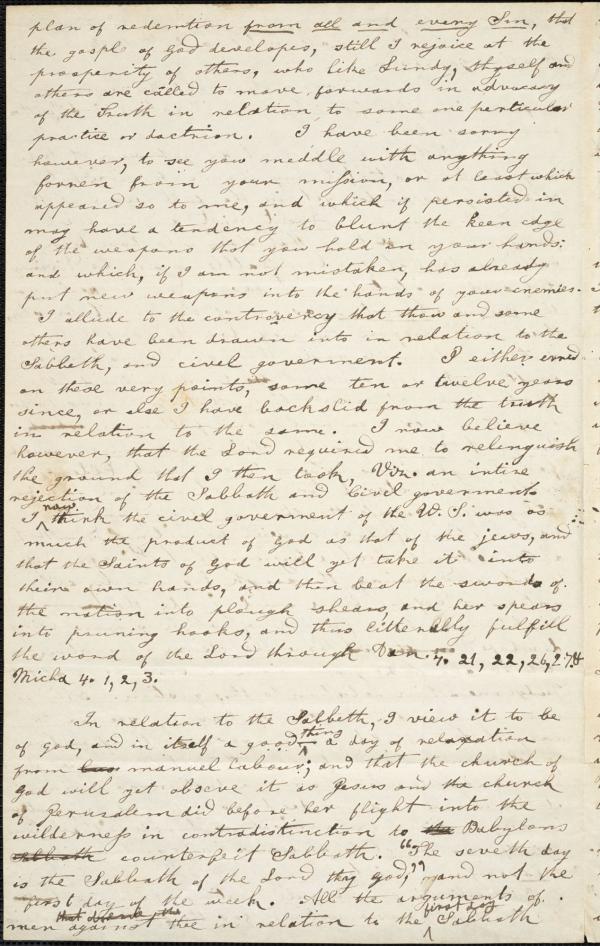 plan of redemtion from all and every Sin, that
the gosple of god developes, still I rejoice at the
prosperity of others, who like Lundy, thyself and
others are called to move forwards in advocacy
of the Truth in relation to some one particular
practice or doctrion. I have been sorry
however, to see you meddle with anything
forren from your mission, or at least which
appeared so to me, and which if persisted in
may have a tendency to blunt the keen edge
of the weapons that you hold on your hands:
and which, if I am not mistaken, has already
put new weapons into the hands of your enemies.
I allude to the controvercy that thou and some
others have been drawn into in relation to the
Sabbeth, and civel goverment. I either erred
on these very points, some ten or twelve years
since, or else I have backslid from the truth
in relation to the same. I now believe
however, that the Lord required me to relinquish
the ground that I then took, Viz. an intire
rejection of the Sabbath and Civel goverment
I now think the civel goverment of the U. S. was as
much the product of God as that of the jews, and
that the Saints of God will yet take it into
their own hands, and then beat the swords of
the nation into plough shears, and her spears
into pruning hooks, and thus litterally fulfill
the word of the Lord through Dan. 7. 21, 22, 26, 27, &
Micha 4. 1, 2, 3.
In relation to the Sabbeth, I view it to be
of god, and in itself a good thing a day of relaxation
from manuel labour; and that the church of
God will yet obsove it as Jesus and the church
of Jerusalem did before her flight into the
wilderness in contradistinction to the Babylons
sabbath counterfeit Sabbath. "The seventh day
is the Sabbath of the Lord thy god," and not the
first day of the week. All the arguments of
men that observe the against thee in relation to the first day Sabbath